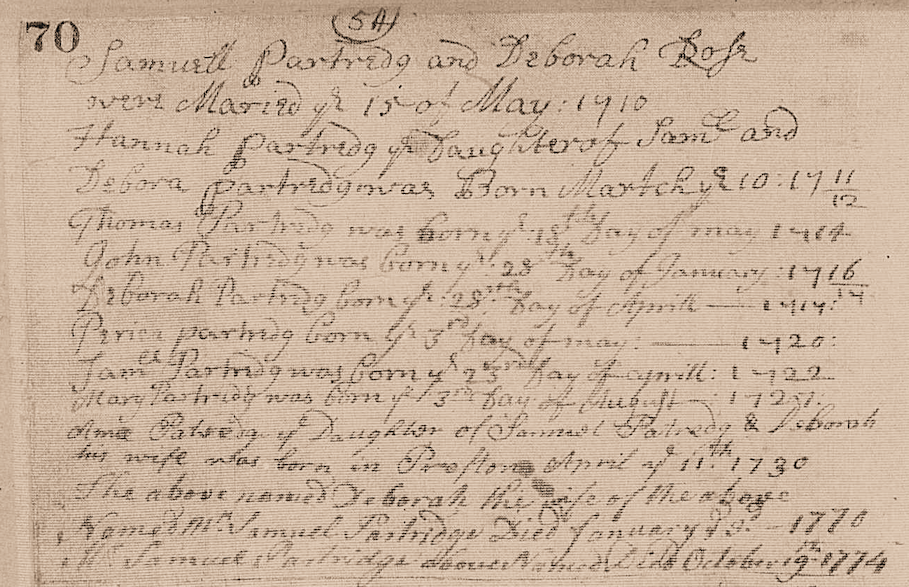 70
54
Samuell Partredg and Deborah Rose
were Maried ye 15 of May: 1710
Hannah partredg ye Daughter of Saml and
Debora partredg was Born Martch ye 10: 17 11/12
Thomas Partredg was born ye: 18th Day of may 1714
John Partredg was born ye: 28th Day of January: 1716/17
Deborah Partredg born ye: 28:th Day of Aprill
partredg born ye 3rd day of may: 1720:
Samel Partredg was born ye 23rd Day of 1722
Mary Partredg was born ye 3rd Day of August
Patredg ye Daughter of Samuel Patredg & Deborah
his wife was born in Preston April ye 11:th 1730
The above named Deborah the wife of the above
Named Mr Samuel Partridge Died January 1770
Mr Samuel Partridge above Named Died October 9th 1774